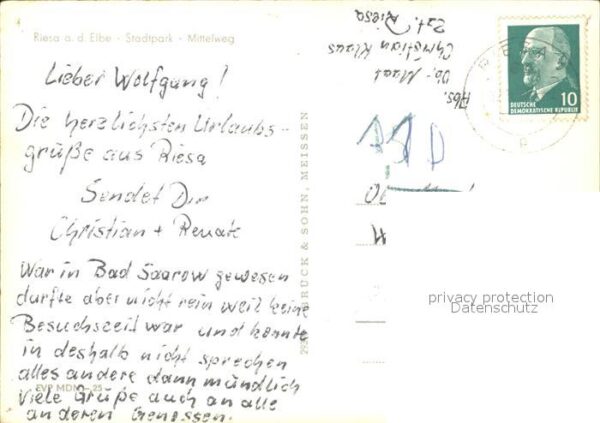 Riesa a. d. Elbe · Stadtpark · Mittelweg
Lieber Wolfgang!
Die herzlichsten Urlaubs-
grüße aus Riesa
Sendet Dir
Christian + Renate
War in Bad Saarow gewesen
durfte aber nicht rein weil keine
Besuchszeit war und konnte
in deshalb nicht sprechen
alles andere dann mündlich
Viele Grüße auch an alle
anderen Genossen.
EVP MDN -,25
BRUCK & SOHN, MEISSEN
Abs.
Maat
Christian Klaus
Zzt. Riesa
DEUTSCHE
DEMOKRATISCHE REPUBLIK
10
privacy protection
Datenschutz